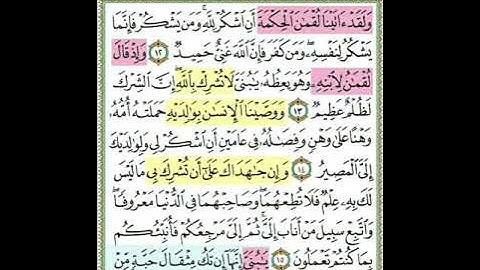 وَلَقَدْ ءَاتَيْنَا لُقْمَٰنَ ٱلْحِكْمَةَ أَنِ ٱشْكُرْ لِلَّهِ ۚ وَمَن يَشْكُرْ فَإِنَّمَا
يَشْكُرُ لِنَفْسِهِۦ ۖ وَمَن كَفَرَ فَإِنَّ ٱللَّهَ غَنِىٌّ حَمِيدٌ ١٢ وَإِذْ قَالَ
لُقْمَٰنُ لِٱبْنِهِۦ وَهُوَ يَعِظُهُۥ يَٰبُنَىَّ لَا تُشْرِكْ بِٱللَّهِ ۖ إِنَّ ٱلشِّرْكَ
لَظُلْمٌ عَظِيمٌ ١٣ وَوَصَّيْنَا ٱلْإِنسَٰنَ بِوَٰلِدَيْهِ حَمَلَتْهُ أُمُّهُۥ
وَهْنًا عَلَىٰ وَهْنٍ وَفِصَٰلُهُۥ فِى عَامَيْنِ أَنِ ٱشْكُرْ لِى وَلِوَٰلِدَيْكَ
إِلَىَّ ٱلْمَصِيرُ ١٤ وَإِن جَٰهَدَاكَ عَلَىٰٓ أَن تُشْرِكَ بِى مَا لَيْسَ
لَكَ بِهِۦ عِلْمٌ فَلَا تُطِعْهُمَا ۖ وَصَاحِبْهُمَا فِى ٱلدُّنْيَا مَعْرُوفًا ۖ
وَٱتَّبِعْ سَبِيلَ مَنْ أَنَابَ إِلَىَّ ۚ ثُمَّ إِلَىَّ مَرْجِعُكُمْ فَأُنَبِّئُكُم
بِمَا كُنتُمْ تَعْمَلُونَ ١٥ يَٰبُنَىَّ إِنَّهَآ إِن تَكُ مِثْقَالَ حَبَّةٍ مِّنْ